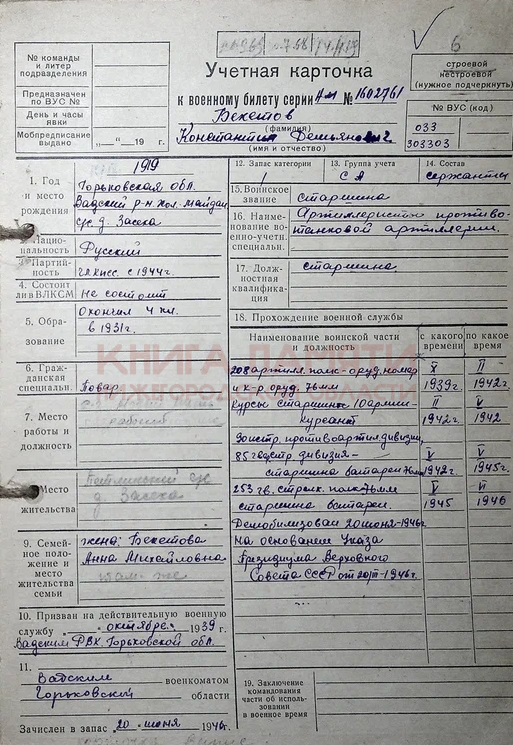 6
Учетная карточка
к военному билету серии НМ № 1602761
Бекетов
(фамилия)
Константин Демьянович
(имя и отчество)
№ команды
и литер
подразделения
Предназначен
по ВУС №
День и часы
явки
Мобпредписание
выдано „ “ 19 г.
строевой
нестроевой
(нужное подчеркнуть)
№ ВУС (код)
033
303303
1. Год
и место
рождения
1919
Горьковская обл.
Вадский р-н Кол.-Майдан
с/с д. Засека
2. Нацио-
нальность
Русский
3. Партий-
ность
чл. КПСС с 1944 г.
4. Состоит
ли в ВЛКСМ
Не состоит
5. Обра-
зование
Окончил 4 кл.
в 1931 г.
6. Граж-
данская
специальн.
Повар
7. Место
работы и
должность
8. Место
жительства
с/с
д. Засека
9. Семей-
ное по-
ложение и
место
жительства
семьи
жена: Бекетова
Анна Михайловна
там же
10. Призван на действительную военную
службу октябре 1939 г.
Вадским РВК Горьковской обл.
11.
Вадским военкоматом
Горьковской области
Зачислен в запас 20 июня 1946 г.
12. Запас категории
1
13. Группа учета
СА
14. Состав
сержантский
15. Воинское
звание
старшина
16. Наиме-
нование во-
енно-учетн.
специальн.
Артиллеристы противо-
танковой артиллерии.
17. Долж-
ностная
квалифика-
ция
старшина
18. Прохождение военной службы
Наименование воинской части
и должность
с какого
времени
по какое
время
208 артил. полк оруд. номер X II
и к-р оруд. 1939 г. 1942 г.
Курсы старшин 10 армии- II V
курсант 1942 г. 1942
дивизия- V V
старшина батареи 1942 г. 1945 г.
253 гв. стрелк. полк V VI
старшина батареи. 1945 1946
Демобилизован 20 июня-1946 г
на основании Указа
Президиума Верховного
Совета СССР от 20/III-1946 г.
19. Заключение
командования
части об исполь-
зовании
в военное время
КНИГА ПАМЯТИ
НИЖЕГОРОДСКОЙ ОБЛАСТИ